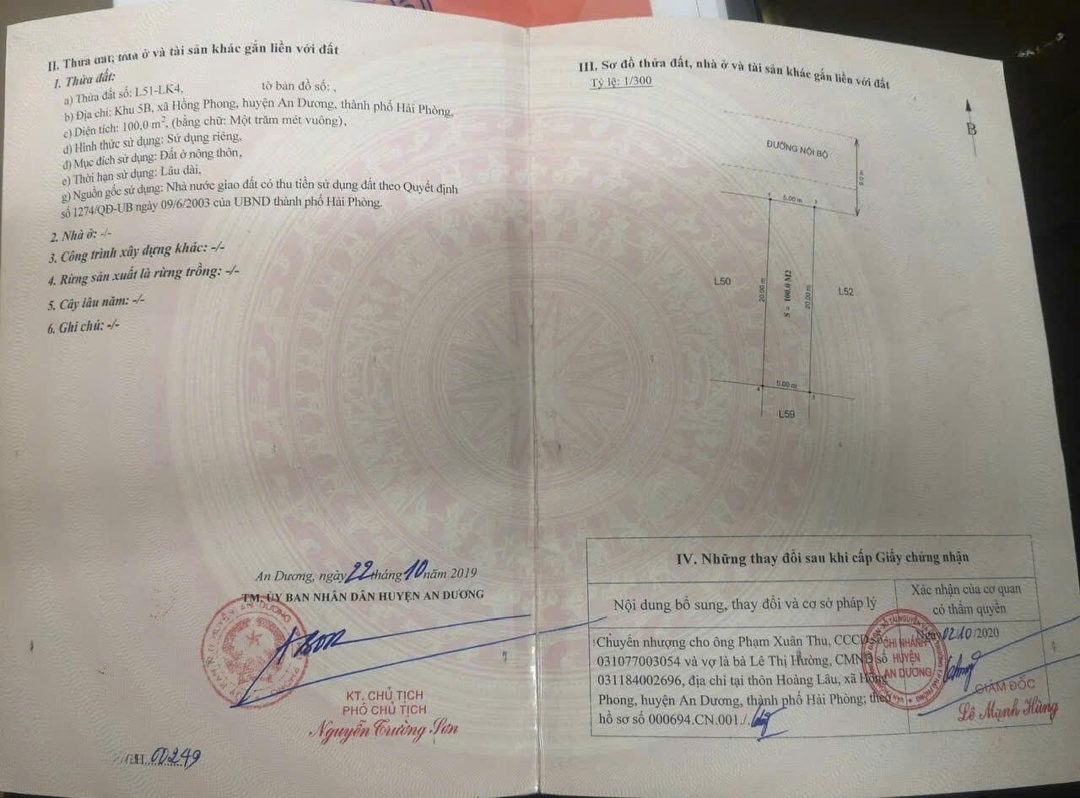 II. Thửa đất, nhà ở và tài sản khác gắn liền với đất
1. Thửa đất:
a) Thửa đất số: L51-LK4, tờ bản đồ số: ,
b) Địa chỉ: Khu 5B, xã Hồng Phong, huyện An Dương, thành phố Hải Phòng,
c) Diện tích: 100,0 m², (bằng chữ: Một trăm mét vuông),
d) Hình thức sử dụng: Sử dụng riêng,
đ) Mục đích sử dụng: Đất ở nông thôn,
e) Thời hạn sử dụng: Lâu dài,
g) Nguồn gốc sử dụng: Nhà nước giao đất có thu tiền sử dụng đất theo Quyết định
số 1274/QĐ-UB ngày 09/6/2003 của UBND thành phố Hải Phòng.
2. Nhà ở: -/-
3. Công trình xây dựng khác: -/-
4. Rừng sản xuất là rừng trồng: -/-
5. Cây lâu năm: -/-
6. Ghi chú: -/-
An Dương, ngày 22 tháng 10 năm 2019
TM. ỦY BAN NHÂN DÂN HUYỆN AN DƯƠNG
KT. CHỦ TỊCH
PHÓ CHỦ TỊCH
Nguyễn Trường Sơn
00249
III. Sơ đồ thửa đất, nhà ở và tài sản khác gắn liền với đất
Tỷ lệ: 1/300
B
ĐƯỜNG NỘI BỘ
5.00 m
L50
20.00 m
S = 100.0 M2
20.00 m
L52
5.00 m
L59
IV. Những thay đổi sau khi cấp Giấy chứng nhận
Nội dung bổ sung, thay đổi và cơ sở pháp lý
Xác nhận của cơ quan
có thẩm quyền
Chuyển nhượng cho ông Phạm Xuân Thu, CCCD số
031077003054 và vợ là bà Lê Thị Hường, CMND số
031184002696, địa chỉ tại thôn Hoàng Lâu, xã Hồng
Phong, huyện An Dương, thành phố Hải Phòng; theo
hồ sơ số 000694.CN.001./.
Ngày 02/10/2020
CHI NHÁNH
HUYỆN
AN DƯƠNG
GIÁM ĐỐC
Lê Mạnh Hùng